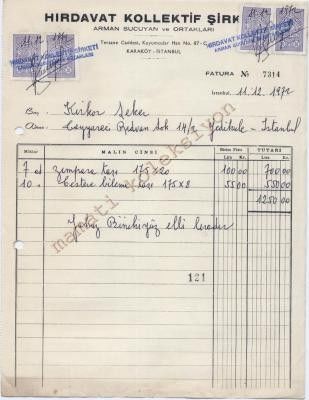 HIRDAVAT KOLLEKTİF ŞİRK
ARMAN SUCUYAN ve ORTAKLARI
Tersane Caddesi, Kuyumcular Han No. 67-
KARAKÖY - İSTANBUL
11.12.1972
11.12.1972
FATURA № 7314
İstanbul, 11.12.1972
Bay, Kirkor Şeker
Adres: Tayyareci Rıdvan Sok 14/2 Yedikule - İstanbul
Miktar MALIN CİNSİ Birim Fiatı TUTARI
Lira Kr. Lira Kr.
7 ad zımpara taşı 175x20 100 00 700 00
10 " Testere bileme taşı 175x8 55 00 550 00
1250 00
Yalnız Binikiyüz elli liradır
121
manati koleksiyon